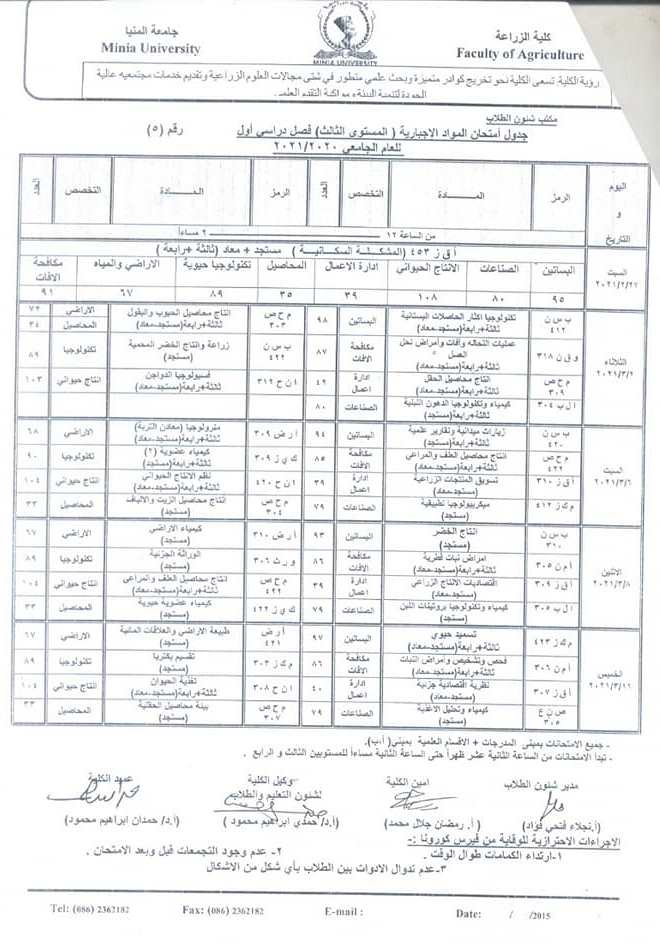 جامعة المنيا
Minia University
MINIA UNIVERSITY
كلية الزراعة
Faculty of Agriculture
رؤية الكلية: تسعى الكلية نحو تخريج كوادر متميزة وبحث علمي متطور في شتى مجالات العلوم الزراعية وتقديم خدمات مجتمعيه عالية
الجودة لتنمية البيئة ومواكبة التقدم العلمى.
مكتب شئون الطلاب
جدول أمتحان المواد الاجبارية ( المستوى الثالث) فصل دراسي أول رقم (٥)
للعام الجامعي ٢٠٢١/٢٠٢٠
اليوم و التاريخ | الرمز | المـــادة | التخصص | العدد | الرمز | المـــادة | التخصص | العدد
من الساعة ١٢ ــ ٢ مساءاً
السبت ٢٠٢١/٢/٢٧
أ ق ز ٤٥٣ (المشكلة السكانية) مستجد + معاد (ثالثة +رابعة )
البساتين | الصناعات | الانتاج الحيواني | ادارة الاعمال | المحاصيل | تكنولوجيا حيوية | الاراضي والمياه | مكافحة الافات
٩٥ | ٨٠ | ١٠٨ | ٣٩ | ٣٥ | ٨٩ | ٦٧ | ٩١
الثلاثاء ٢٠٢١/٣/٢
ب س ن ٤١٢ | تكنولوجيا اكثار الحاصلات البستانية ثالثة+رابعة(مستجد-معاد) | البساتين | ٩٨ | م ح ص ٣٠٣ | انتاج محاصيل الحبوب والبقول ثالثة+رابعة(مستجد-معاد) | الاراضي المحاصيل | ٧٢ ٣٤
و ق ن ٣١٨ | عمليات النحاله وآفات وأمراض نحل العسل ثالثة+رابعة(مستجد-معاد) | مكافحة الافات | ٨٧ | ب س ن ٤٢٢ | زراعة وانتاج الخضر المحمية (مستجد) | تكنولوجيا | ٨٩
م ح ص ٣٠٩ | انتاج محاصيل الحقل (مستجد-معاد) | ادارة اعمال | ٤٢ | ا ن ح ٣١٢ | فسيولوجيا الدواجن (مستجد-معاد) | انتاج حيواني | ١٠٣
ا ل ب ٣٠٤ | كيمياء وتكنولوجيا الدهون النباتية ثالثة+رابعة(مستجد) | الصناعات | ٨٠
السبت ٢٠٢١/٣/٦
ب س ن ٤٢٠ | زيارات ميدانية وتقارير علمية (مستجد) | البساتين | ٩٤ | أ ر ض ٣٠٩ | منرولوجيا (معادن التربة) ثالثة+رابعة(مستجد-معاد) | الاراضي | ٦٨
م ح ص ٤٢٢ | انتاج محاصيل العلف والمراعي ثالثة+رابعة(مستجد-معاد) | مكافحة الافات | ٨٥ | ك ي ز ٣٠٩ | كيمياء عضوية (٢) ثالثة+رابعة(مستجد) | تكنولوجيا | ٩٠
أ ق ز ٣١٠ | تسويق المنتجات الزراعية (مستجد-معاد) | ادارة اعمال | ٣٩ | ا ن ح ٤٢٠ | نظم الانتاج الحيواني ثالثة+رابعة(مستجد-معاد) | انتاج حيواني | ١٠٤
م ك ز ٤١٢ | ميكربيولوجيا تطبيقية (مستجد) | الصناعات | ٧٩ | م ح ص ٣٠٤ | انتاج محاصيل الزيت والالياف (مستجد) | المحاصيل | ٣٣
الاثنين ٢٠٢١/٣/٨
ب س ن ٣١٠ | انتاج الخضر (مستجد) | البساتين | ٩٣ | أ ر ض ٣١٠ | كيمياء الاراضي (مستجد) | الاراضي | ٦٧
أ م ن ٣٠٥ | امراض نبات فطرية (مستجد) | مكافحة الافات | ٨٦ | و ر ث ٣٠٦ | الوراثة الجزئية (مستجد) | تكنولوجيا | ٨٩
أ ق ز ٣٠٩ | اقتصاديات الانتاج الزراعي (مستجد-معاد) | ادارة اعمال | ٣٩ | م ح ص ٤٢٢ | انتاج محاصيل العلف والمراعي ثالثة+رابعة(مستجد-معاد) | انتاج حيواني | ١٠٤
ا ل ب ٣٠٥ | كيمياء وتكنولوجيا بروتينات اللبن (مستجد) | الصناعات | ٧٩ | ك ي ز ٤٢٢ | كيمياء عضوية حيوية (مستجد) | المحاصيل | ٣٣
الخميس ٢٠٢١/٣/١١
م ك ز ٤٢٣ | تسميد حيوي ثالثة+رابعة(مستجد-معاد) | البساتين | ٩٧ | أ ر ض ٤٢١ | طبيعة الاراضي والعلاقات المائية (مستجد) | الاراضي | ٦٧
أ م ن ٣٠٦ | فحص وتشخيص وامراض النبات ثالثة+رابعة(مستجد) | مكافحة الافات | ٨٦ | م ك ز ٣٠٢ | تقسيم بكتريا (مستجد) | تكنولوجيا | ٨٩
أ ق ز ٣٠٧ | نظرية اقتصادية جزئية (مستجد-معاد) | ادارة اعمال | ٤٠ | ا ن ح ٣٠٨ | تغذية الحيوان (مستجد-معاد) | انتاج حيواني | ١٠٤
ص ن ع ٣٠٥ | كيمياء وتحليل الاغذية (مستجد) | الصناعات | ٧٩ | م ح ص ٣٠٧ | بيئة محاصيل الحقلية (مستجد) | المحاصيل | ٣٣
- جميع الامتحانات بمبنى المدرجات + الاقسام العلمية بمبنى(أ،ب).
- تبدأ الامتحانات من الساعة الثانية عشر ظهراً حتى الساعة الثانية مساءاً للمستويين الثالث و الرابع .
مدير شئون الطلاب | امين الكلية | وكيل الكلية لشئون التعليم والطلاب | عميد الكلية
(أ.نجلاء فتحي فؤاد) | (أ. رمضان جلال محمد) | (أ.د/ حمدي ابراهيم محمود ) | (أ.د/ حمدان ابراهيم محمود)
الاجراءات الاحترازية للوقاية من فيرس كورونا :-
١-ارتداء الكمامات طوال الوقت . ٢- عدم وجود التجمعات قبل وبعد الامتحان .
٣-عدم تدوال الادوات بين الطلاب بأي شكل من الاشكال
Tel: (086) 2362182 Fax: (086) 2362182 E-mail : Date: / /2015